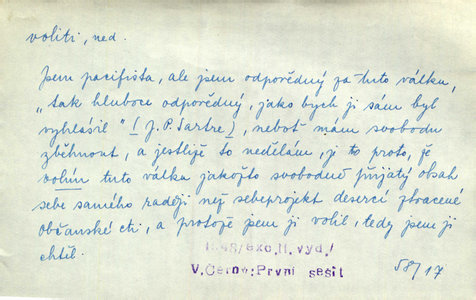 voliti, ned.
Jsem pacifista, ale jsem odpovědný za tuto válku,
"tak hluboce odpovědný, jako bych ji sám byl
vyhlásil" (J. P. Sartre), neboť mám svobodu
zběhnout, a jestliže to nedělám, je to proto, že
volím tuto válku jakožto svobodně přijatý obsah
sebe samého raději než sebeprojekt desercí ztracené
občanské cti, a protože jsem ji volil, tedy jsem ji
chtěl.
1948/exc.II.vyd./
V.Černý:První sešit
58/17